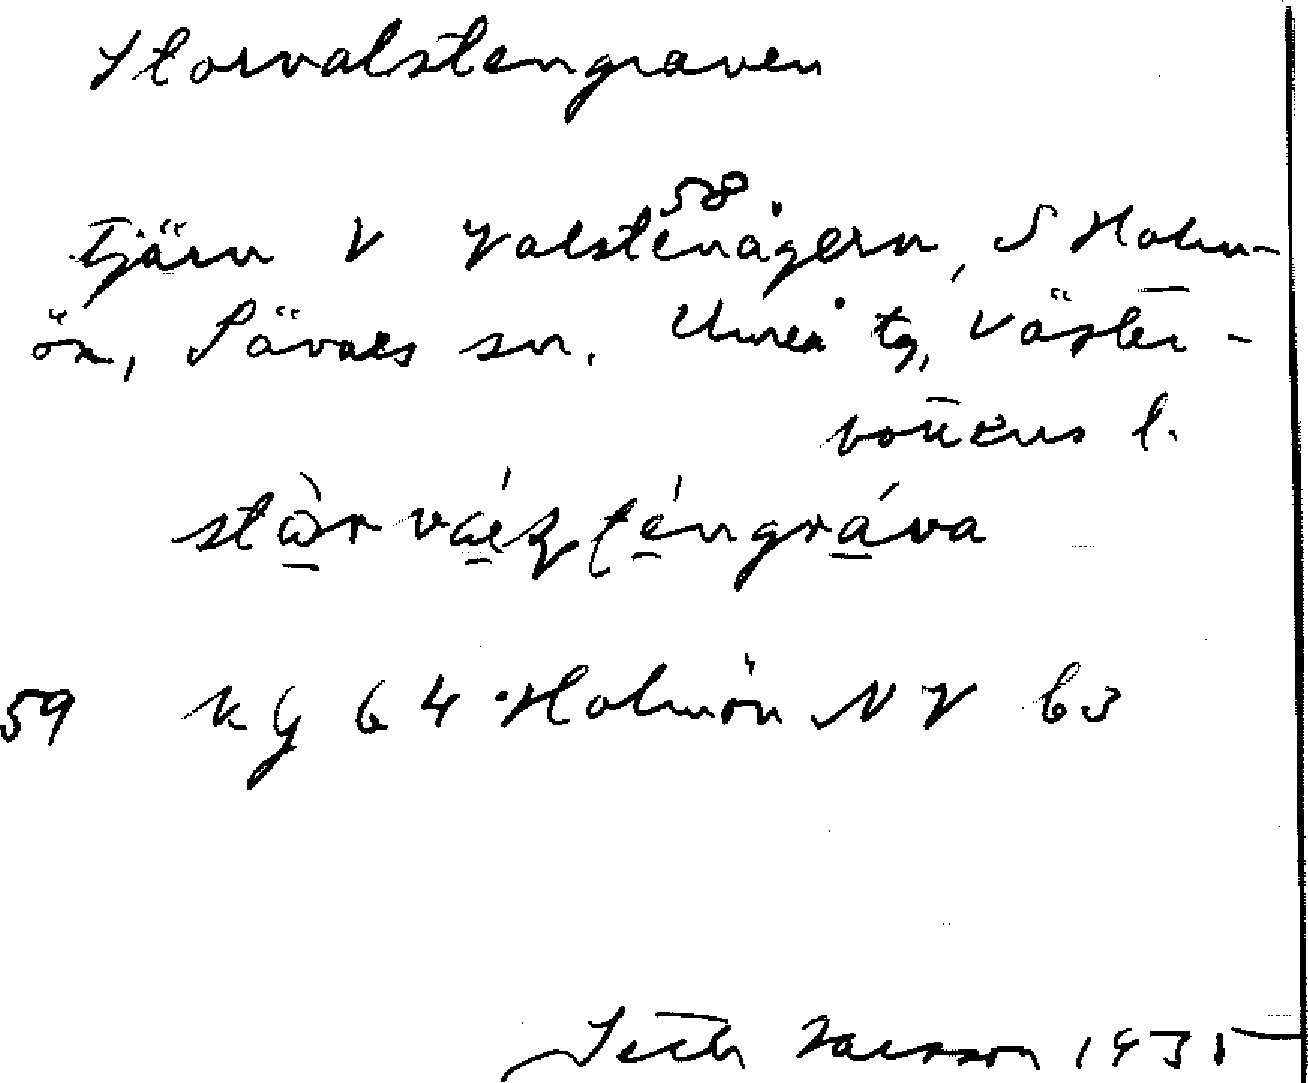 Storvalstengraven
58.
Tjärn V Valstenågern, S Holm-
ön, Sävars sn. Umeå tg, Väster-
bottens l.
stòr váɫsténgráva
59 kg 64 Holmön NV 63
Seth Larsson 1935